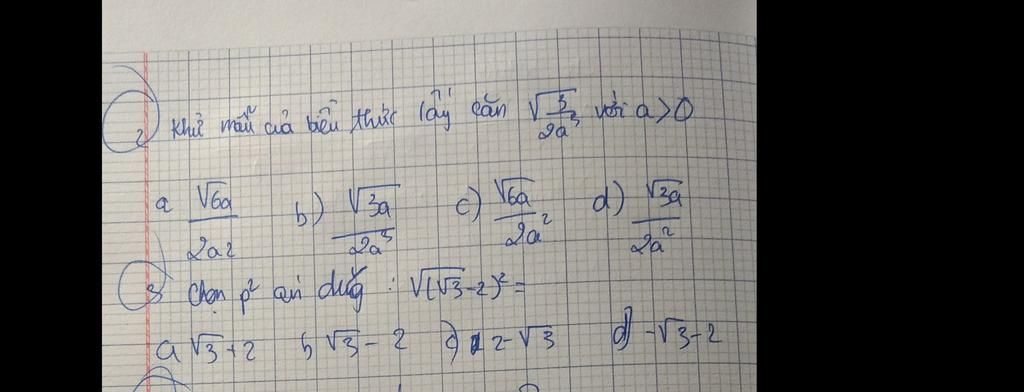 2 Khử mẫu của biểu thức lấy căn √(3/2a³) với a>0
a √6a/2a2 b) √3a/2a³ c) √6a/2a² d) √3a/2a²
3 Chọn p² án đúg : √(√3-2)² =
a √3+2 b √3-2 c) 2-√3 d) -√3-2